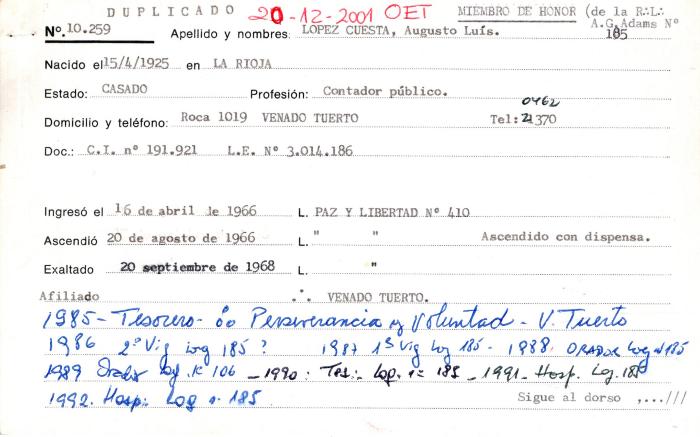 DUPLICADO 20-12-2001 OET MIEMBRO DE HONOR (de la R∴L∴
A.G.Adams Nº
185
Nº. 10.259 Apellido y nombres: LOPEZ CUESTA, Augusto Luís.
Nacido el 15/4/1925 en LA RIOJA
Estado: CASADO Profesión: Contador público.
Domicilio y teléfono: Roca 1019 VENADO TUERTO Tel: 0462 21370
Doc.: C.I. nº 191.921 L.E. Nº 3.014.186
Ingresó el 16 de abril de 1966 L. PAZ Y LIBERTAD Nº 410
Ascendió 20 de agosto de 1966 L. " " Ascendido con dispensa.
Exaltado 20 septiembre de 1968 L. "
Afiliado ∴ VENADO TUERTO.
1985 - Tesorero - Perseverancia y Voluntad - V. Tuerto
1986 2º Vig log 185 ? 1987 1º Vig Log 185 - 1988. ORADOR Log Nº 185
1989 Orador Log. Nº 106 - 1990: Tes: Log. nº 185 - 1991 - Hosp. Log. 185
1992. Hosp: Log nº 185
Sigue al dorso ,...///